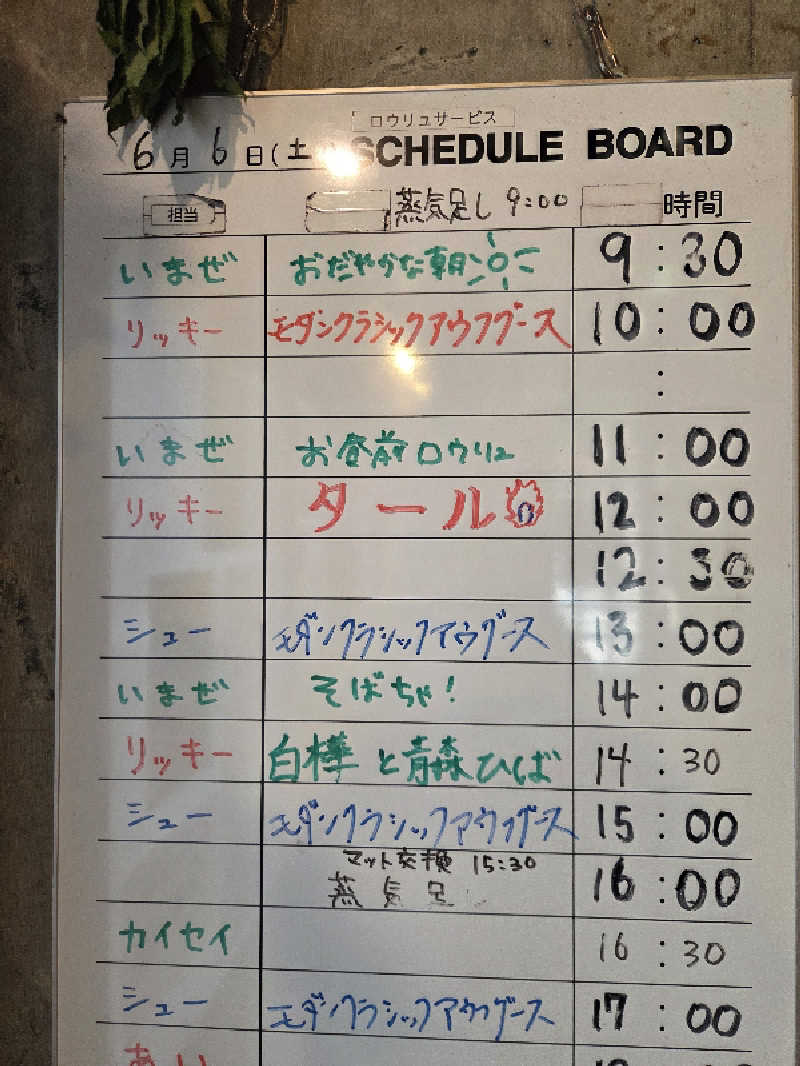 ロウリュサービス
6月 6日(土) SCHEDULE BOARD
担当 蒸気足し 9:00 時間
いまぜ おだやかな朝 9:30
リッキー モダンクラシックアウフグース 10:00
:
いまぜ お昼前ロウリュ 11:00
リッキー タール 12:00
12:30
シュー モダンクラシックアウグース 13:00
いまぜ そばちゃ! 14:00
リッキー 白樺と青森ひば 14:30
シュー モダンクラシックアウフグース 15:00
マット交換 15:30
蒸気足し 16:00
カイセイ 16:30
シュー モダンクラシックアウフグース 17:00
あい